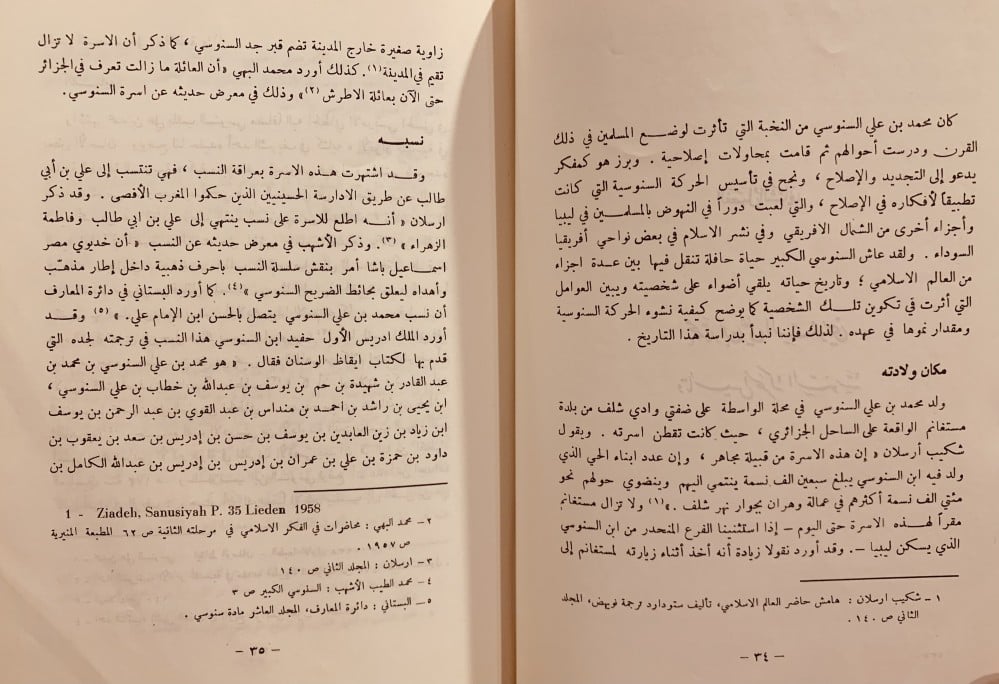 كان محمد بن علي السنوسي من النخبة التي تأثرت لوضع المسلمين في ذلك
القرن ودرست أحوالهم ثم قامت بمحاولات إصلاحية . وبرز هو كمفكر
يدعو إلى التجديد والإصلاح ، ونجح في تأسيس الحركة السنوسية التي كانت
تطبيقاً لأفكاره في الإصلاح ، والتي لعبت دوراً في النهوض بالمسلمين في ليبيا
وأجزاء أخرى من الشمال الافريقي وفي نشر الاسلام في بعض نواحي أفريقيا
السوداء . ولقد عاش السنوسي الكبير حياة حافلة تنقل فيها بين عدة اجزاء
من العالم الاسلامي ؛ وتاريخ حياته يلقي أضواء على شخصيته ويبين العوامل
التي أثرت في تكوين تلك الشخصية كما يوضح كيفية نشوء الحركة السنوسية
ومقدار نموها في عهده . لذلك فإننا نبدأ بدراسة هذا التاريخ .
مكان ولادته
ولد محمد بن علي السنوسي في محلة الواسطة على ضفتي وادي شلف من بلدة
مستغانم الواقعة على الساحل الجزائري ، حيث كانت تقطن اسرته . ويقول
شكيب أرسلان « إن هذه الاسرة من قبيلة مجاهر ، وإن عدد ابناء الحي الذي
ولد فيه ابن السنوسي يبلغ سبعين الف نسمة ينتمي اليهم وينضوي حولهم نحو
مئتي الف نسمة أكثرهم في عمالة وهران بجوار نهر شلف . »(١) ولا تزال مستغانم
مقراً لهذه الاسرة حتى اليوم – إذا استثنينا الفرع المنحدر من ابن السنوسي
الذي يسكن ليبيا –. وقد أورد نقولا زيادة أنه أخذ أثناء زيارته لمستغانم إلى
١ – شكيب ارسلان : هامش حاضر العالم الاسلامي، تأليف ستودارد ترجمة نويهض، المجلد
الثاني ص ١٤٠ .
– ٣٤ –
زاوية صغيرة خارج المدينة تضم قبر جد السنوسي ، كما ذكر أن الاسرة لا تزال
تقيم في المدينة(١). كذلك أورد محمد البهي «أن العائلة ما زالت تعرف في الجزائر
حتى الآن بعائلة الاطرش (٢)» وذلك في معرض حديثه عن اسرة السنوسي.
نسبه
وقد اشتهرت هذه الاسرة بعراقة النسب ، فهي تنتسب إلى علي بن أبي
طالب عن طريق الادارسة الحسينيين الذين حكموا المغرب الأقصى . وقد ذكر
ارسلان « أنه اطلع للاسرة على نسب ينتهي إلى علي بن ابي طالب وفاطمة
الزهراء » (٣). وذكر الأشهب في معرض حديثه عن النسب « أن خديوي مصر
اسماعيل باشا أمر بنقش سلسلة النسب باحرف ذهبية داخل إطار مذهّب
وأهداه ليعلق بحائط الضريح السنوسي »(٤). كما أورد البستاني في دائرة المعارف
أن نسب محمد بن علي السنوسي يتصل بالحسن ابن الإمام علي. » (٥) وقد
أورد الملك ادريس الأول حفيد ابن السنوسي هذا النسب في ترجمته لجده التي
قدم بها لكتاب ايقاظ الوسنان فقال . « هو محمد بن علي السنوسي بن محمد بن
عبد القادر بن شهيدة بن حم بن يوسف بن عبدالله بن خطاب بن علي السنوسي ،
ابن يحيى بن راشد بن احمد بن منداس بن عبد القوي بن عبد الرحمن بن يوسف
ابن زياد بن زين العابدين بن يوسف بن حسن بن إدريس بن سعد بن يعقوب بن
داود بن حمزة بن علي بن عمران بن إدريس بن إدريس بن عبدالله الكامل بن
1 - Ziadeh, Sanusiyah P. 35 Lieden 1958
٢ – محمد البهي : محاضرات في الفكر الاسلامي في مرحلته الثانية ص ٦٢ المطبعة المنيرية
ص ١٩٥٧ .
٣ – ارسلان : المجلد الثاني ص ١٤٠
٤ – محمد الطيب الأشهب : السنوسي الكبير ص ٣
٥ – البستاني : دائرة المعارف، المجلد العاشر مادة سنوسي .
– ٣٥ –